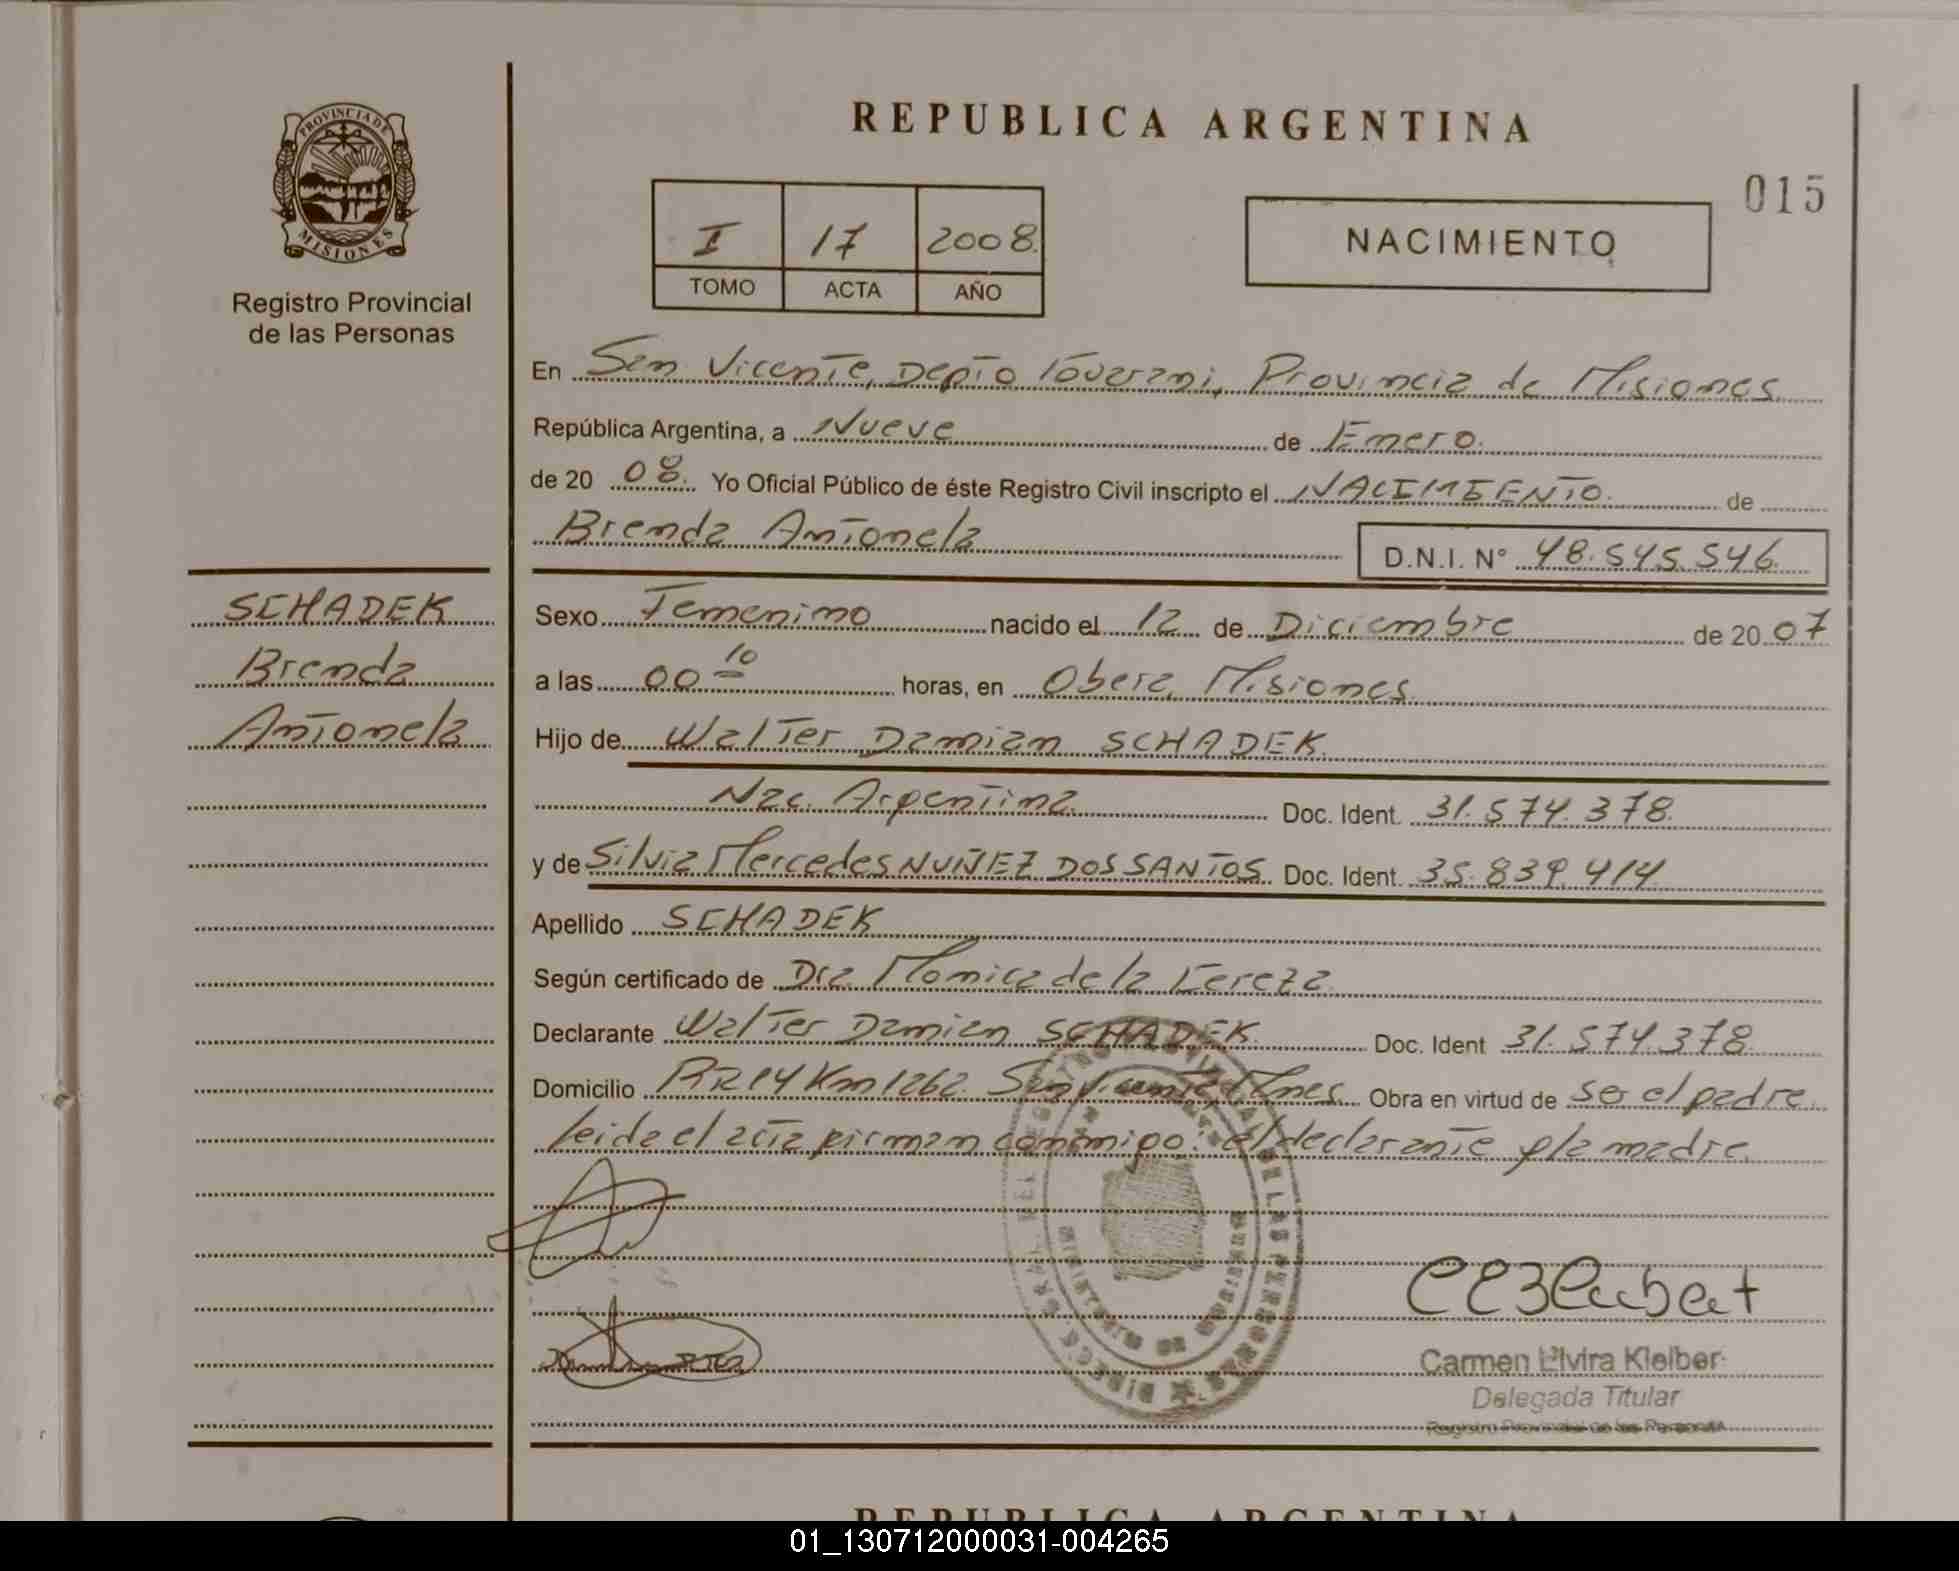 REPUBLICA ARGENTINA
015
PROVINCIA DE
MISIONES
Registro Provincial
de las Personas
I 17 2008.
TOMO ACTA AÑO
NACIMIENTO
En San Vicente, Depto Guarani, Provincia de Misiones
República Argentina, a Nueve de Enero.
de 20 08. Yo Oficial Público de éste Registro Civil inscripto el NACIMIENTO. de
Brenda Antonela D.N.I. N° 48.545.546.
SCHADEK
Brenda
Antonela
Sexo Femenino nacido el 12 de Diciembre de 20 07
a las 00 10 horas, en Obera, Misiones.
Hijo de Walter Damian SCHADEK.
Nac. Argentina. Doc. Ident. 31.574.378.
y de Silvia Mercedes NUÑEZ DOS SANTOS. Doc. Ident. 35.839.414
Apellido SCHADEK
Según certificado de Dra. Monica de la Cereza.
Declarante Walter Damian SCHADEK. Doc. Ident 31.574.378.
Domicilio RR14 Km 1262. San Vicente, Mnes. Obra en virtud de ser el padre.
leida el acta firman conmigo: el declarante y la madre.
Carmen Elvira Kleiber
Delegada Titular
Registro Provincial de las Personas
REPUBLICA ARGENTINA
01_130712000031-004265